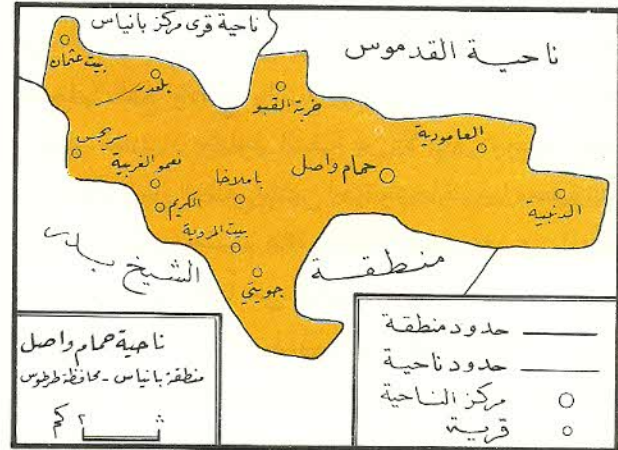 ناحية قرى مركز بانياس
ناحية القدموس
بيت عثمان
بلغدر
خربة القبو
العامودية
سريجس
نعمو الغربية
حمام واصل
باملاخا
الدنبية
الكريم
بيت المروية
جويتي
منطقة الشيخ بدر
ناحية حمام واصل
منطقة بانياس - محافظة طرطوس
٢ كم
حدود منطقة
حدود ناحية
مركز الناحية
قرية